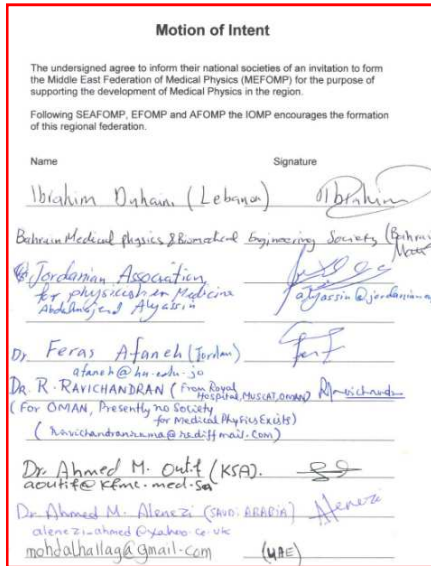 Motion of Intent
The undersigned agree to inform their national societies of an invitation to form
the Middle East Federation of Medical Physics (MEFOMP) for the purpose of
supporting the development of Medical Physics in the region.
Following SEAFOMP, EFOMP and AFOMP the IOMP encourages the formation
of this regional federation.
Name Signature
Ibrahim Duhaini (Lebanon) Ibrahim
Bahrain Medical physics & Biomedical Engineering Society (Bahrain
Jordanian Association
for physicist in Medicine
Abdelmajeed Alyassin alyassin@jordanian
Dr. Feras Afaneh (Jordan)
afaneh@hu.edu.jo
DR. R. RAVICHANDRAN (From Royal Hospital, MUSCAT, OMAN) Ravichandran
(For OMAN, Presently no Society
for Medical Physics Exists)
(ravichandranrama@rediffmail.com)
Dr. Ahmed M. Outif (KSA).
aoutif@kfmc.med.sa
Dr Ahmed M. Alenezi (SAUDI ARABIA) Alenezi
alenezi_ahmed@yahoo.co.uk
mohdalhallag@gmail.com (UAE)